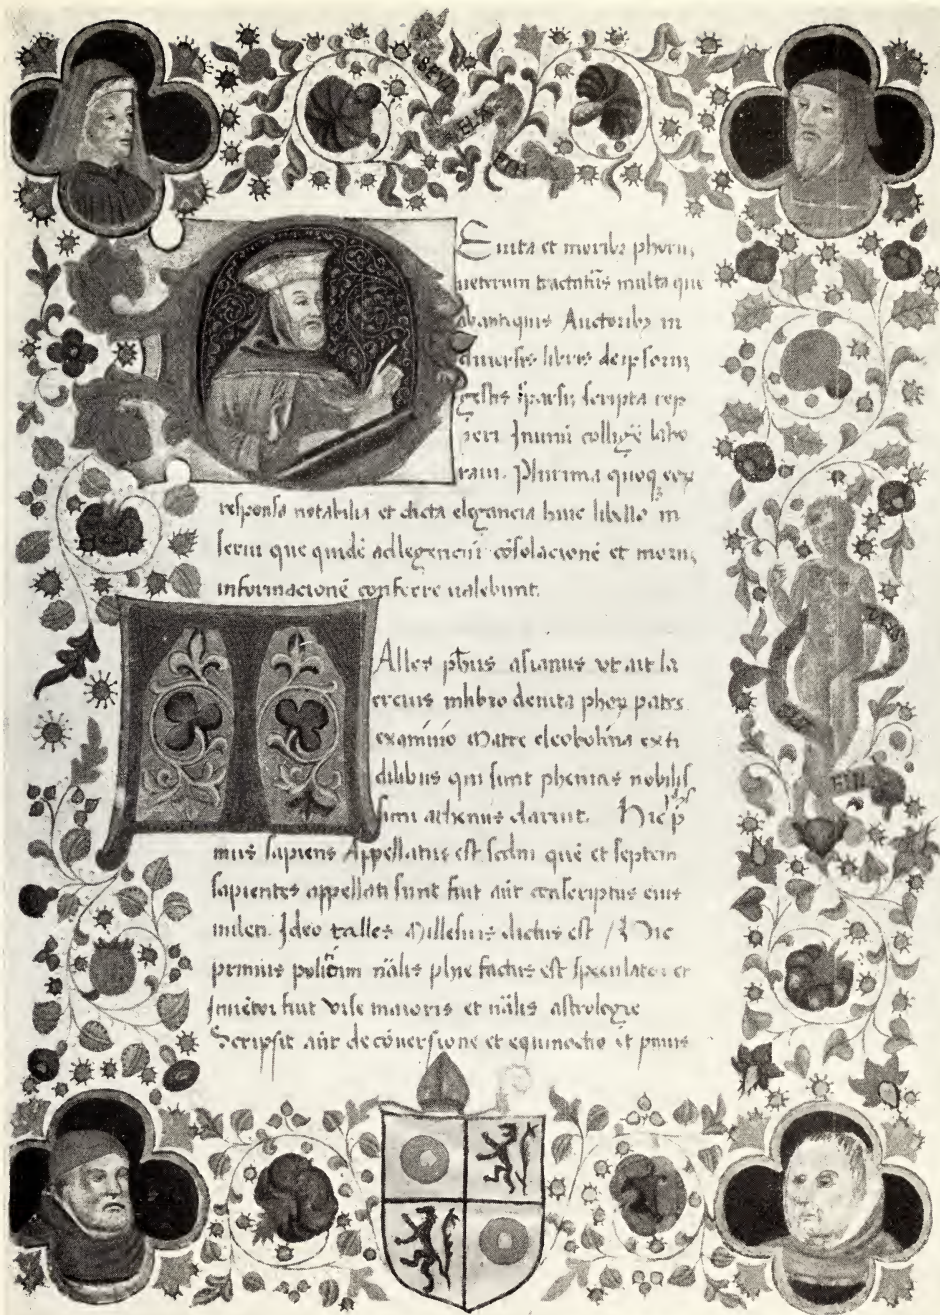 De uita et moribȝ phoruȝ
ueterum tractatus multa que
ab antiquis Auctoribȝ in
diuersis libris de ipsorum
gestis sparsim scripta rep
peri In unum colligere labo
raui. Plurima quoqȝ eoȝ
responsa notabilia et dicta elegancia huic libello in
serui que quidē ad legencium cōsolacionē et moruȝ
informacionē conferre ualebunt.
TAlles phūs asianus vt ait la
ercius in libro de uita phoȝ patre
examino Matre cleobolina ex fi
dilibus qui sunt phenitas nobilis
simi athenis claruit. Hic p̄
mus sapiens Appellatus est scdm quē et septem
sapientes appellati sunt fuit aūt conscriptus ciuis
mileti. Ideo talles Millesius dictus est / Hic
primus politicam nālis phie factus est speculator et
Inuētor fuit vrse maioris et nālis astrologie
Scripsit aūt de cōuersione et equinoctio et primus